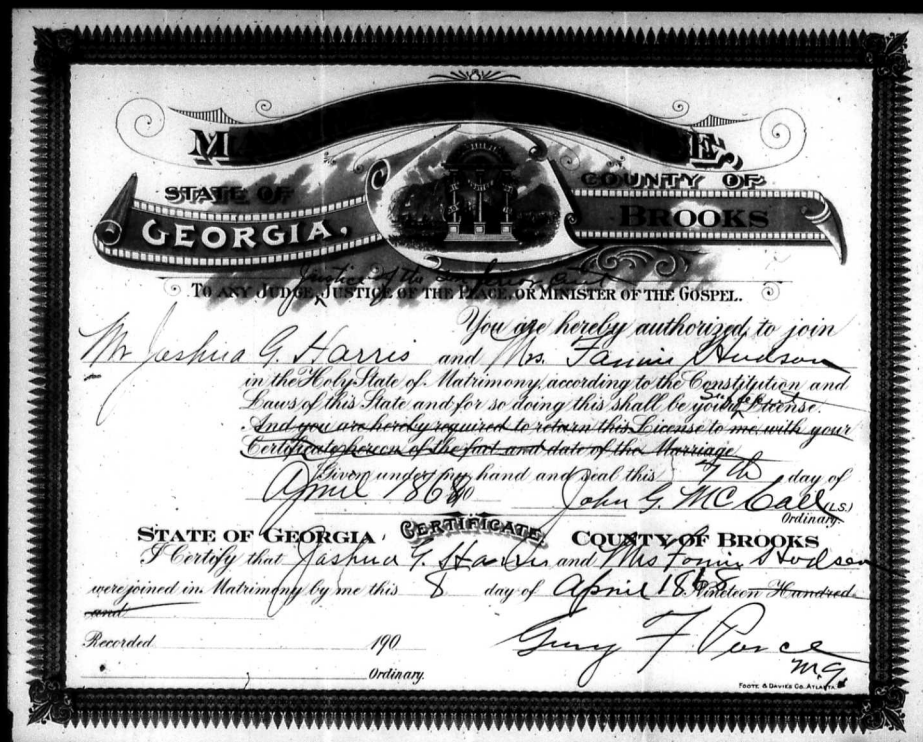 M E,
STATE OF COUNTY OF
GEORGIA, BROOKS
Justice of the Court
TO ANY JUDGE, JUSTICE OF THE PEACE, OR MINISTER OF THE GOSPEL.
You are hereby authorized to join
Mr Joshua G. Harris and Mrs. Fannie Hudson
in the Holy State of Matrimony, according to the Constitution and
Laws of this State and for so doing this shall be your License.
And you are hereby required to return this License to me, with your
Certificate hereon of the fact and date of the Marriage
Given under my hand and seal this 7th day of
April 1868 John G. McCall (L.S.)
Ordinary.
CERTIFICATE
STATE OF GEORGIA COUNTY OF BROOKS
I Certify that Joshua G. Harris and Mrs Fannie Hudson
were joined in Matrimony by me this 8 day of April 1868 Nineteen Hundred
and
Recorded 190
F Pierce
M.G.
Ordinary.
FOOTE & DAVIES CO. ATLANTA